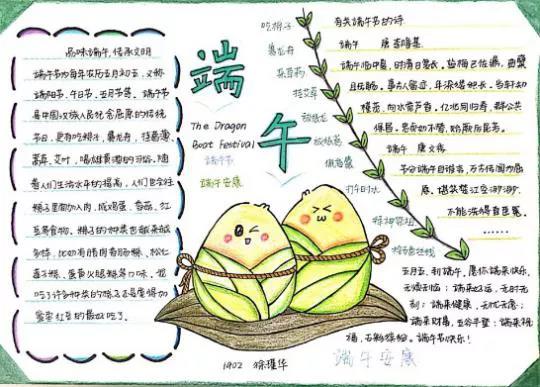 品味端午，传承文明
端午节为每年农历五月初五，又称
端阳节、午日节、五月节等。端午节
是中国汉族人民纪念屈原的传统
节日，更有吃粽子，赛龙舟，挂菖蒲、
蒿草、艾叶，喝雄黄酒的习俗，随
着人们生活水平的提高，人们已会往
粽子里面加入肉、咸鸡蛋、香菇、红
豆等食物，粽子的种类也越来越
多样，比如有腊肉香肠粽、松仁
豆子粽、蛋黄火腿粽等口味，我
吃了许多种类的粽子还是觉得加
蜜枣红豆的最好吃了。
端午
The Dragon
Boat Festival
端午节
端午安康
吃粽子
赛龙舟
采草药
挂艾草
放纸龙
放纸鸢
佩香囊
打午时水
拜神祭祖
拴五色丝线
有关端午节的诗
端午 唐 李隆基
端午临中夏，时清日复长。盐梅已佐鼎，曲糵
且传觞。事古人留迹，年深缕积长。当轩知
槿茂，向水觉芦香。亿兆同归寿，群公共
保昌。忠贞如不替，贻厥后昆芳。
端午 唐 文秀
节分端午自谁言，万古传闻为屈
原。堪笑楚江空渺渺，
不能洗得直臣冤。
……
五月五，到端午，愿你端来快乐，
无嗔到临；端来好运，无时无
刻；端来健康，无忧无虑；
端来财禄，五谷平登；端来祝
福，五彩缤纷。端午节快乐！
端午安康
1902 徐瑾华